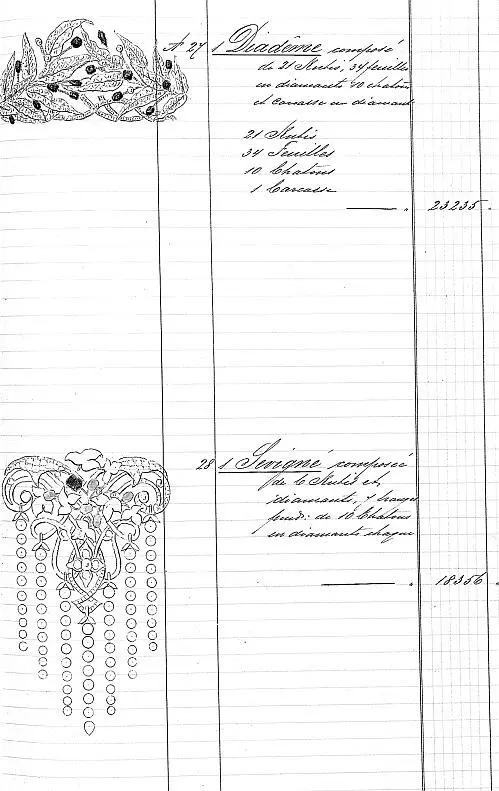 Nº 27 1 Diadême composé
de 21 Rubis, 34 feuilles
en diamants 10 chatons
et Carcasse en diamant
21 Rubis
34 Feuilles
10 Chatons
1 Carcasse
23235
28 1 Sevigné composée
de 6 Rubis et
diamants, 7 franges
pend: de 10 Chatons
en diamants chaque
18356